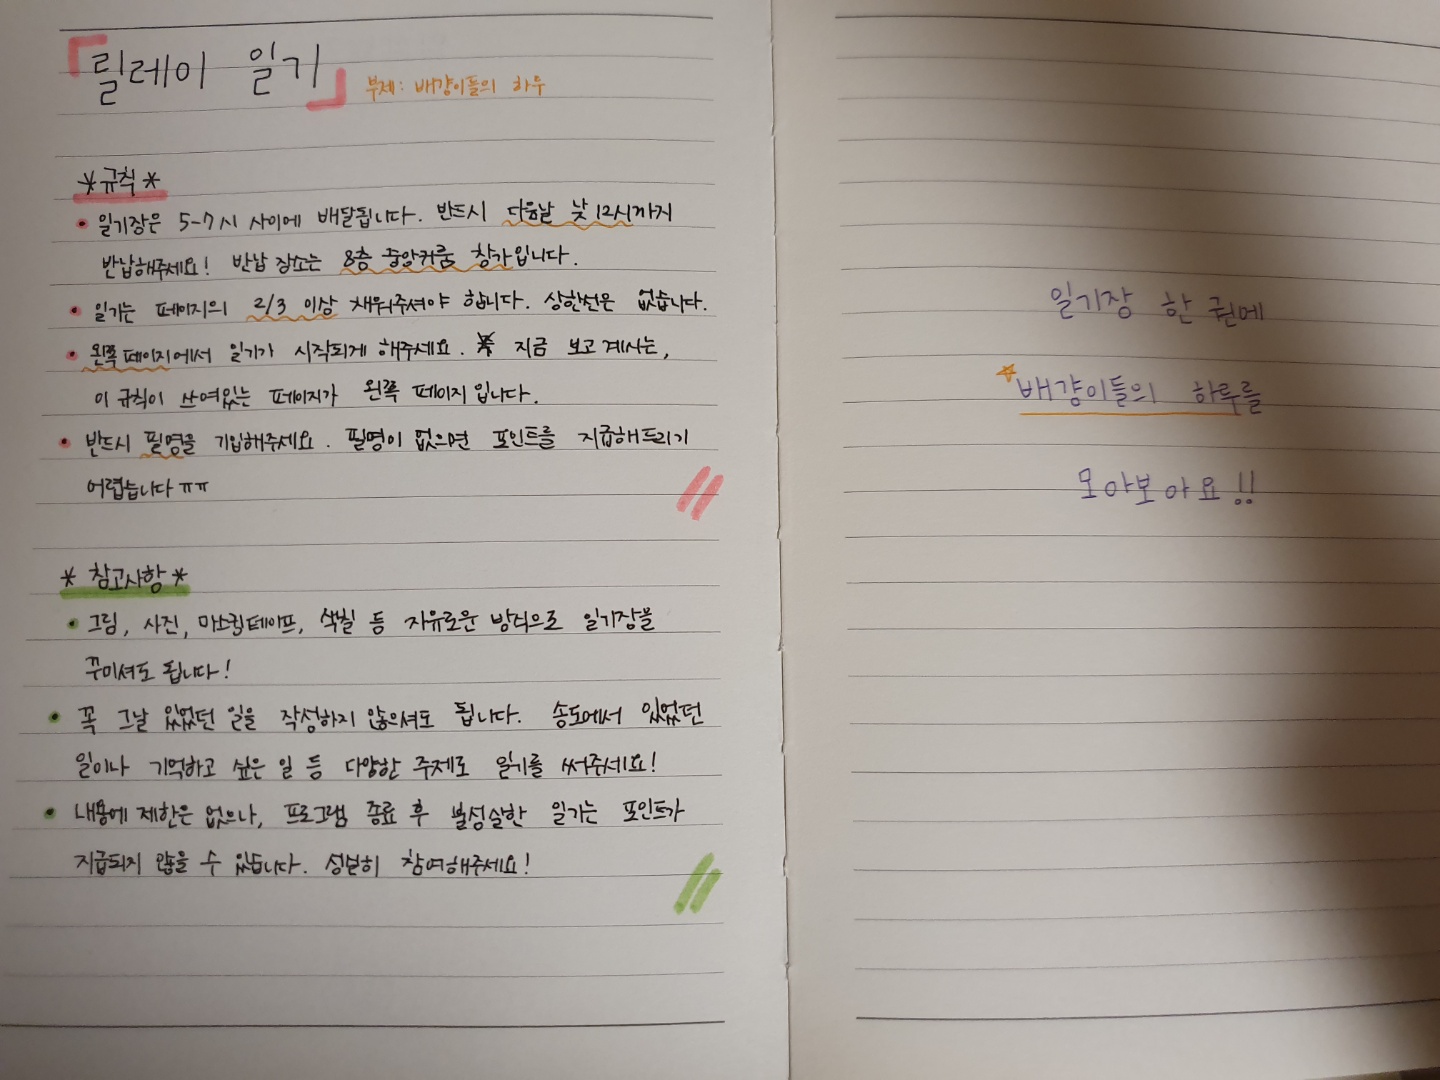 릴레이 일기
부제: 배걍이들의 하루
*규칙*
• 일기장은 5-7시 사이에 배달됩니다. 반드시 다음날 낮 12시까지
반납해주세요! 반납 장소는 8층 중앙커룸 창가입니다.
• 일기는 페이지의 2/3 이상 채워주셔야 합니다. 상한선은 없습니다.
• 왼쪽 페이지에서 일기가 시작되게 해주세요. 지금 보고 계시는,
이 규칙이 쓰여있는 페이지가 왼쪽 페이지입니다.
• 반드시 필명을 기입해주세요. 필명이 없으면 포인트를 지급해드리기
어렵습니다 ㅠㅠ
* 참고사항 *
• 그림, 사진, 마스킹테이프, 색칠 등 자유로운 방식으로 일기장을
꾸미셔도 됩니다!
• 꼭 그날 있었던 일을 작성하지 않으셔도 됩니다. 송도에서 있었던
일이나 기억하고 싶은 일 등 다양한 주제로 일기를 써주세요!
• 내용에 제한은 없으나, 프로그램 종료 후 불성실한 일기는 포인트가
지급되지 않을 수 있습니다. 성실히 참여해주세요!
일기장 한 권에
배걍이들의 하루를
모아보아요!!